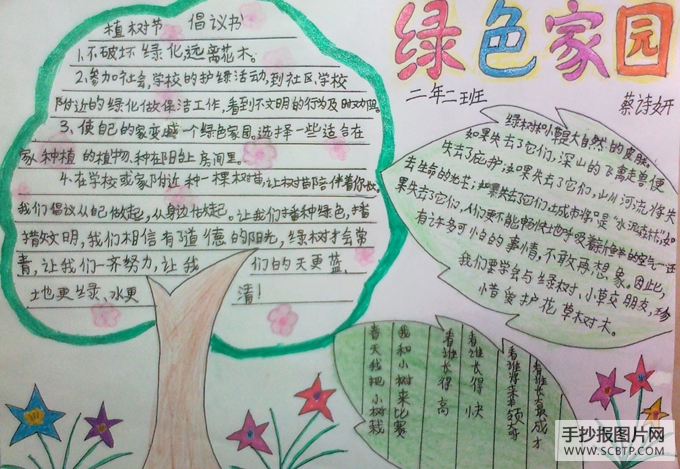 绿色家园
二年二班
蔡诗妍
植树节 倡议书
1.不破坏绿化,远离花木。
2.参加社会,学校的护绿活动,到社区、学校
附近的绿化做保洁工作,看到不文明的行为及时劝阻。
3、使自己的家变成一个绿色家园。选择一些适合在
家种植的植物、种在阳台上房间里。
4.在学校或家附近种一棵树苗,让树苗陪伴着你成
我们倡议从自己做起,从身边做起。让我们播种绿色,播
撒文明,我们相信有了道德的阳光,绿树才会常
青,让我们一齐努力,让我们的天更蓝、
地更绿、水更清!
绿树和小草是大自然的皮肤,
如果失去了它们,深山的飞禽走兽便
失去了庇护;如果失去了它们,山川河流将失
去生命的光芒;如果失去了它们,城市将只是"水泥丛林";如
果失去了它们,人们更不能畅快地呼吸着新鲜的空气……还
有许多可怕的事情,不敢再想象。因此,
我们要学会与绿树、小草交朋友,珍
惜爱护花草树木。
春天我把小树栽
我和小树来比赛
看谁长得高
看谁长得快
看谁将来领奇
看谁长着最成才
手抄报图片网
WWW.SCBTP.COM